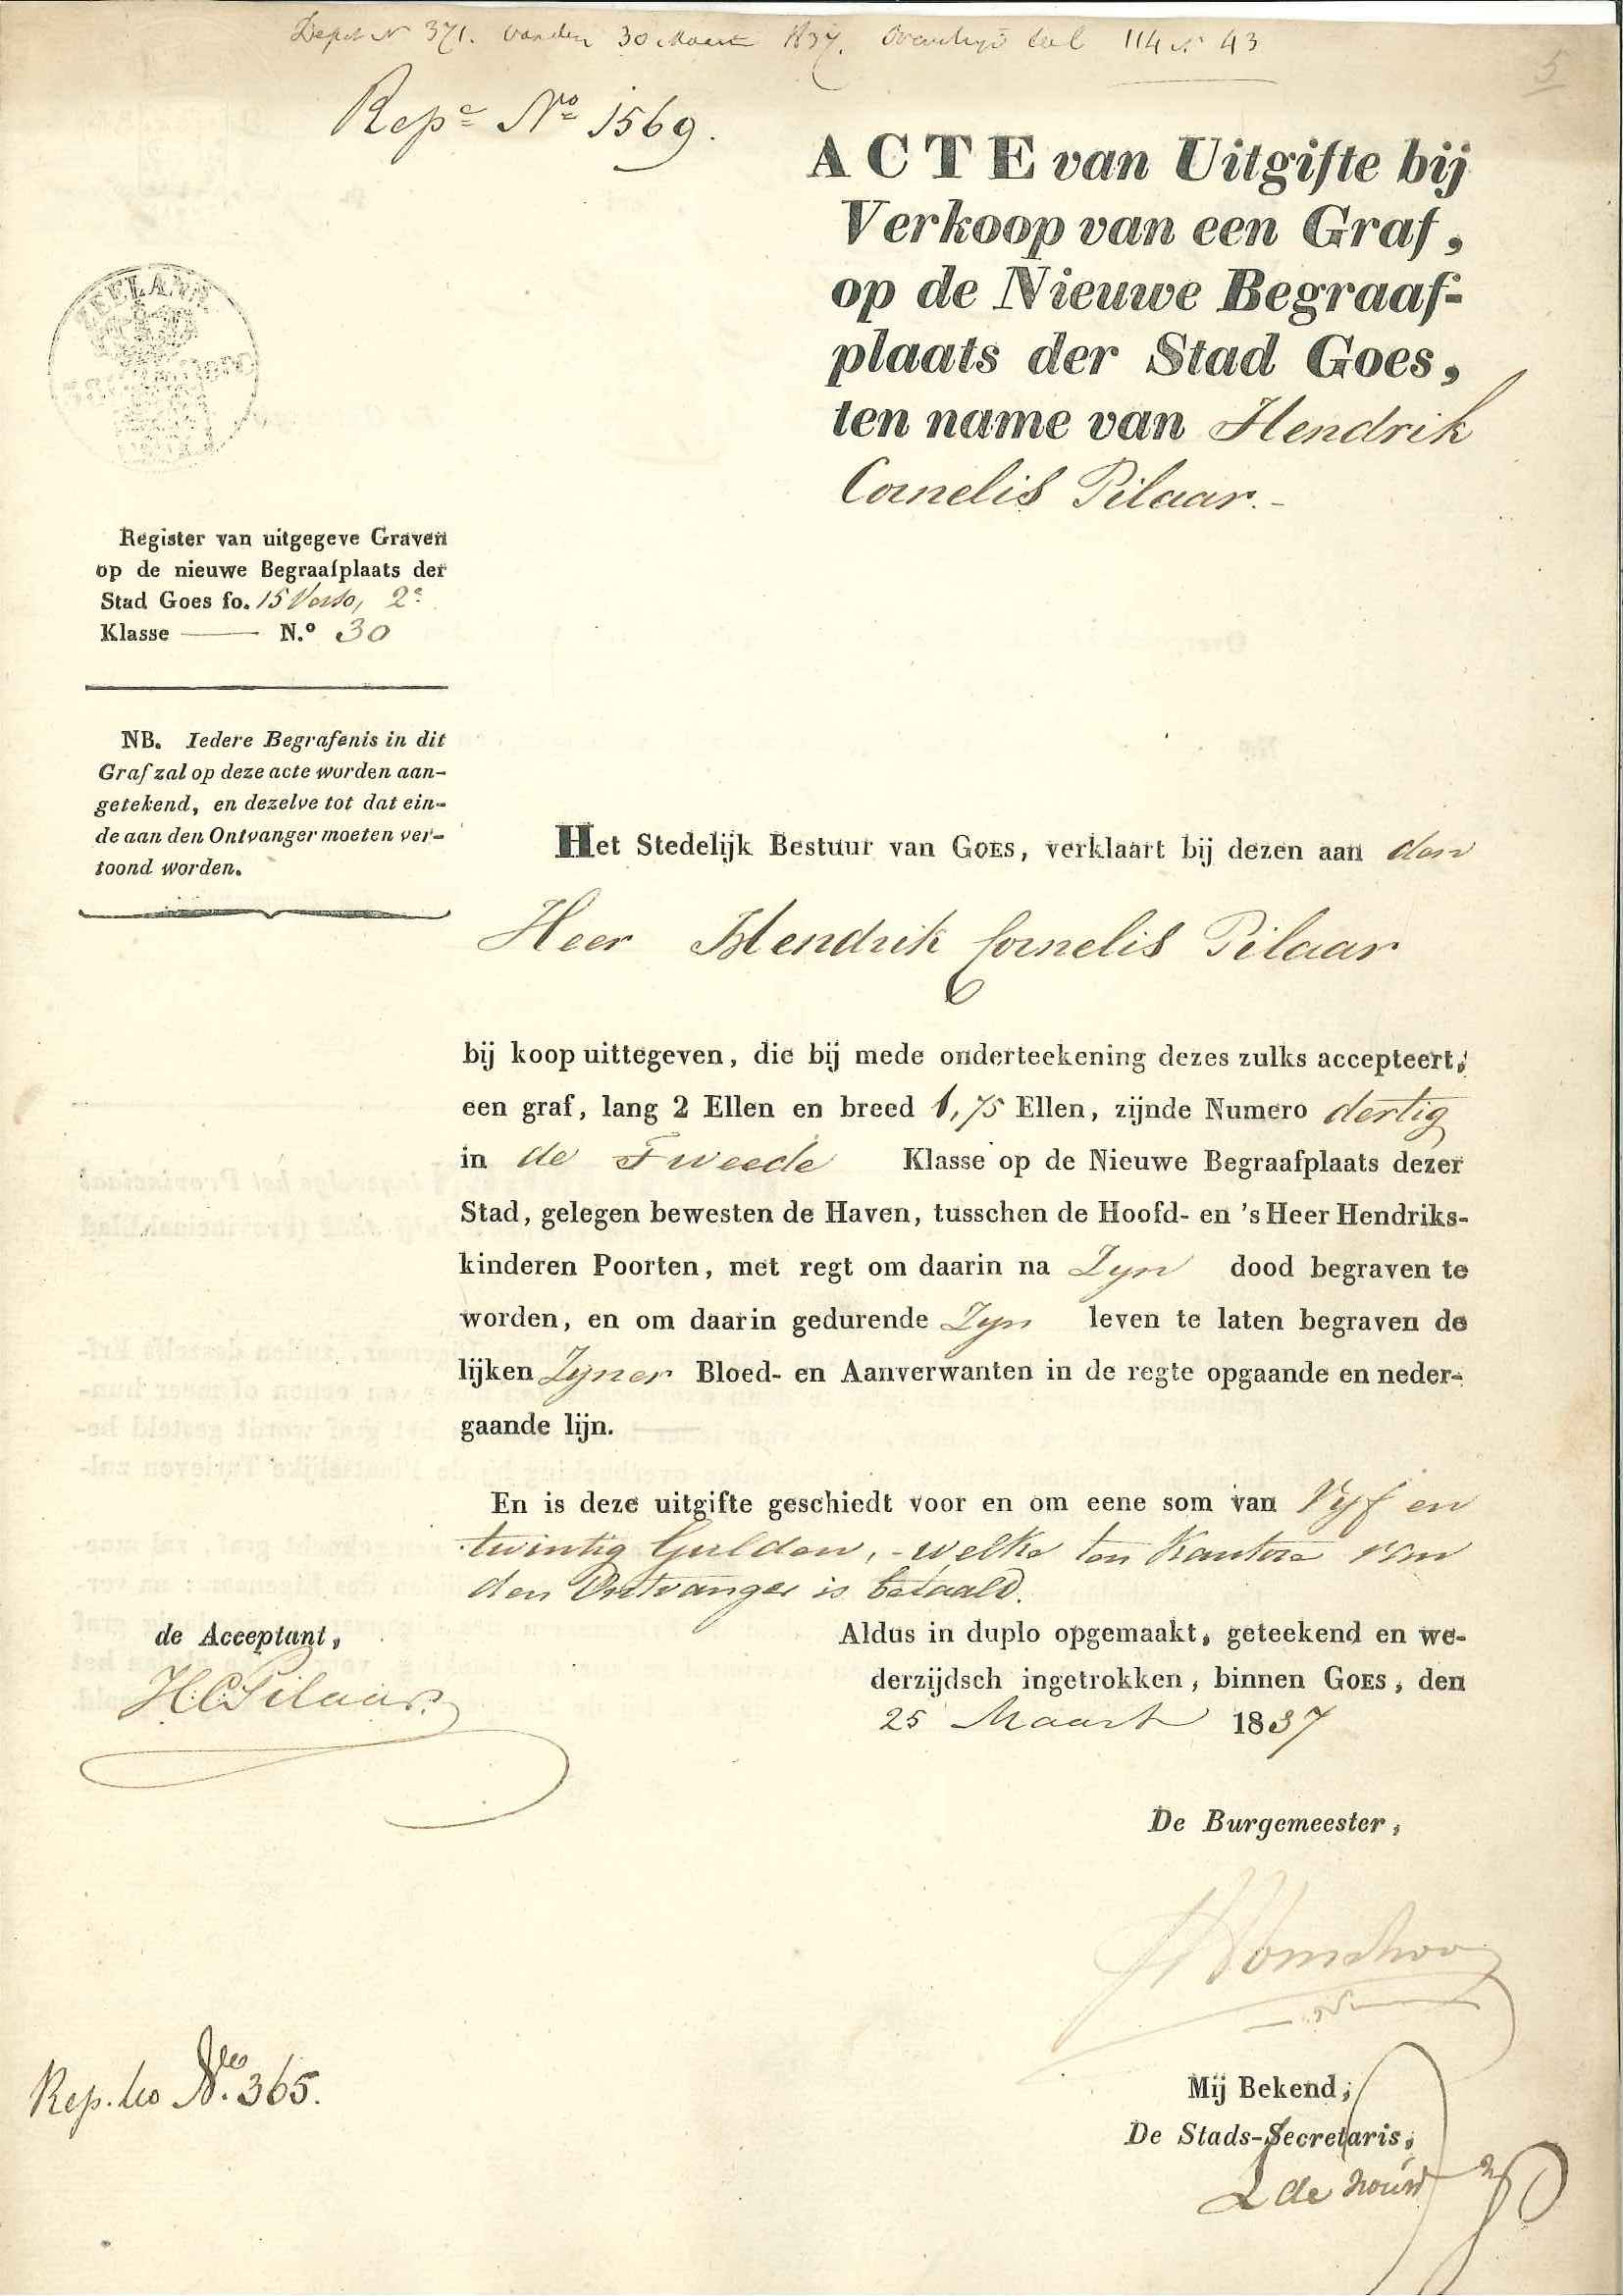 Depot No 371. van den 30 Maart 1837. deel 114 No 43
5
Repe No 1569.
ACTE van Uitgifte bij
Verkoop van een Graf,
op de Nieuwe Begraaf-
plaats der Stad Goes,
ten name van Hendrik
Cornelis Pilaar.-
ZEELAND
Register van uitgegeve Graven
op de nieuwe Begraafplaats der
Stad Goes fo. 15 Verso, 2e
Klasse —— N.o 30
NB. Iedere Begrafenis in dit
Graf zal op deze acte worden aan-
getekend, en dezelve tot dat ein-
de aan den Ontvanger moeten ver-
toond worden.
Het Stedelijk Bestuur van GOES, verklaart bij dezen aan den
Heer Hendrik Cornelis Pilaar
bij koop uittegeven, die bij mede onderteekening dezes zulks accepteert,
een graf, lang 2 Ellen en breed 1,75 Ellen, zijnde Numero dertig
in de Tweede Klasse op de Nieuwe Begraafplaats dezer
Stad, gelegen bewesten de Haven, tusschen de Hoofd- en 's Heer Hendriks-
kinderen Poorten, met regt om daarin na Zyn dood begraven te
worden, en om daarin gedurende Zyn leven te laten begraven de
lijken Zyner Bloed- en Aanverwanten in de regte opgaande en neder-
gaande lijn.
En is deze uitgifte geschiedt voor en om eene som van Vyf en
twintig Gulden, - welke ten Kantore van
den Ontvanger is betaald.
de Acceptant,
HCPilaar.
Aldus in duplo opgemaakt, geteekend en we-
derzijdsch ingetrokken, binnen GOES, den
25 Maart 1837
De Burgemeester,
Rep. No. 365.
Mij Bekend,
De Stads-Secretaris,